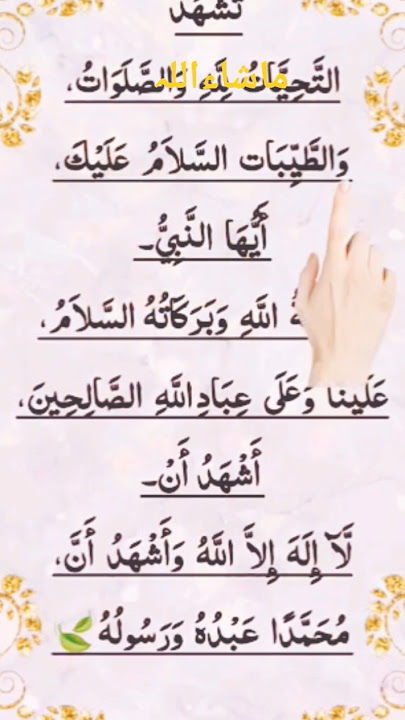 تشهد
ماشاءالله
التَّحِيَّاتُ لِلَّهِ وَالصَّلَوَاتُ،
وَالطَّيِّبَات السَّلاَمُ عَلَيْكَ،
أَيُّهَا النَّبِيُّ۔
اللَّهِ وَبَرَكَاتُهُ السَّلاَمُ،
عَلَينا وَعَلَى عِبَادِ اللَّهِ الصَّالِحِينَ،
أَشْهَدُ أَنْ۔
لَّآ إِلَهَ إِلاَّ اللَّهُ وَأَشْهَدُ أَنَّ،
مُحَمَّدًا عَبْدُهُ وَرَسُولُهُ